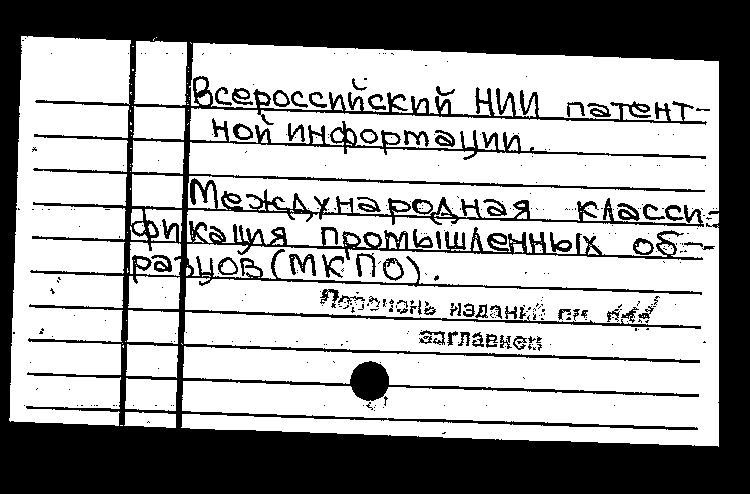 Всероссийский НИИ патент-
ной информации.
Международная класси-
фикация промышленных об-
разцов (МКПО).
Перечень изданий см.
заглавием